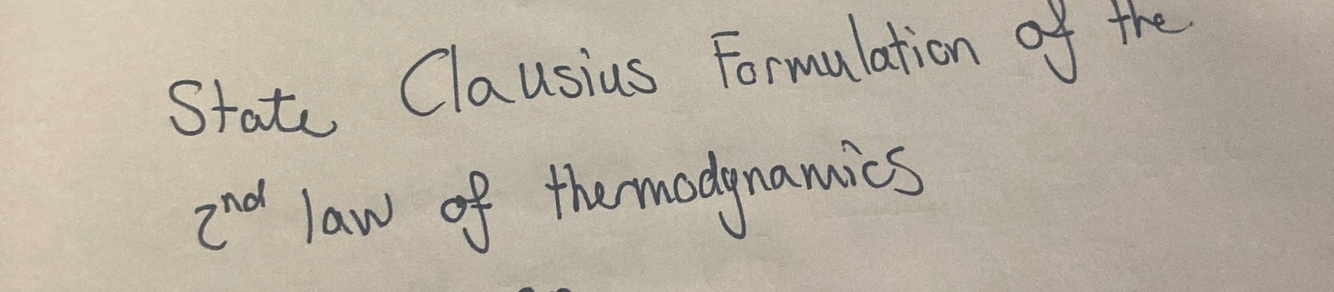 State Clausius Formulation of the
2nd law of thermodynamics